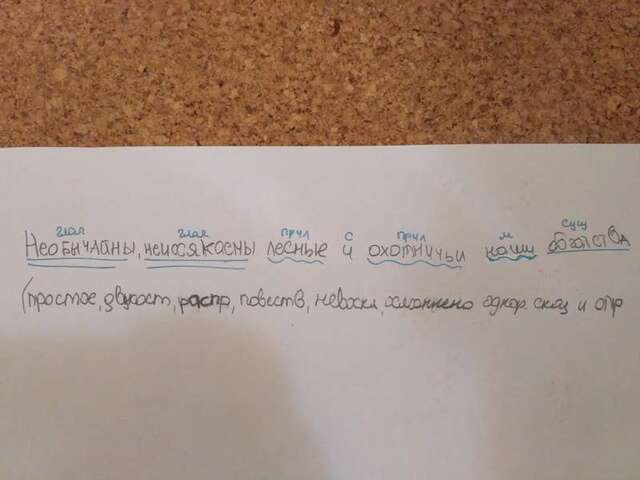 глал глал прил с прил м сущ
Необычайны, неиссякаемы лесные и охотничьи наши богатства
(простое, двусост, распр, повеств, невоскл, осложнено однор. сказ и опр